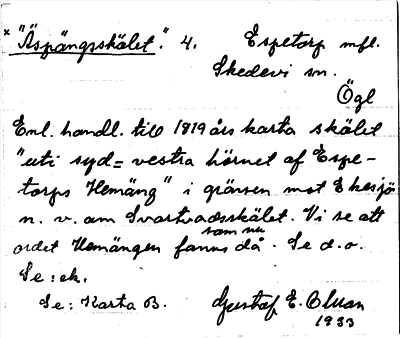 × "Äspängsskälet." 4. Espetorp mfl.
Skedevi sn.
Ögl
Enl. handl. till 1819 års karta skälet
"uti syd=vestra hörnet af Espe-
torps Hemäng" i gränsen mot Ekesjö
n. v. om Svartvadsskälet. Vi se att
ordet Hemängen fanns som nu då. Se d.o.
Se: ek.
Se: Karta B. Gustaf E. Olman
1933